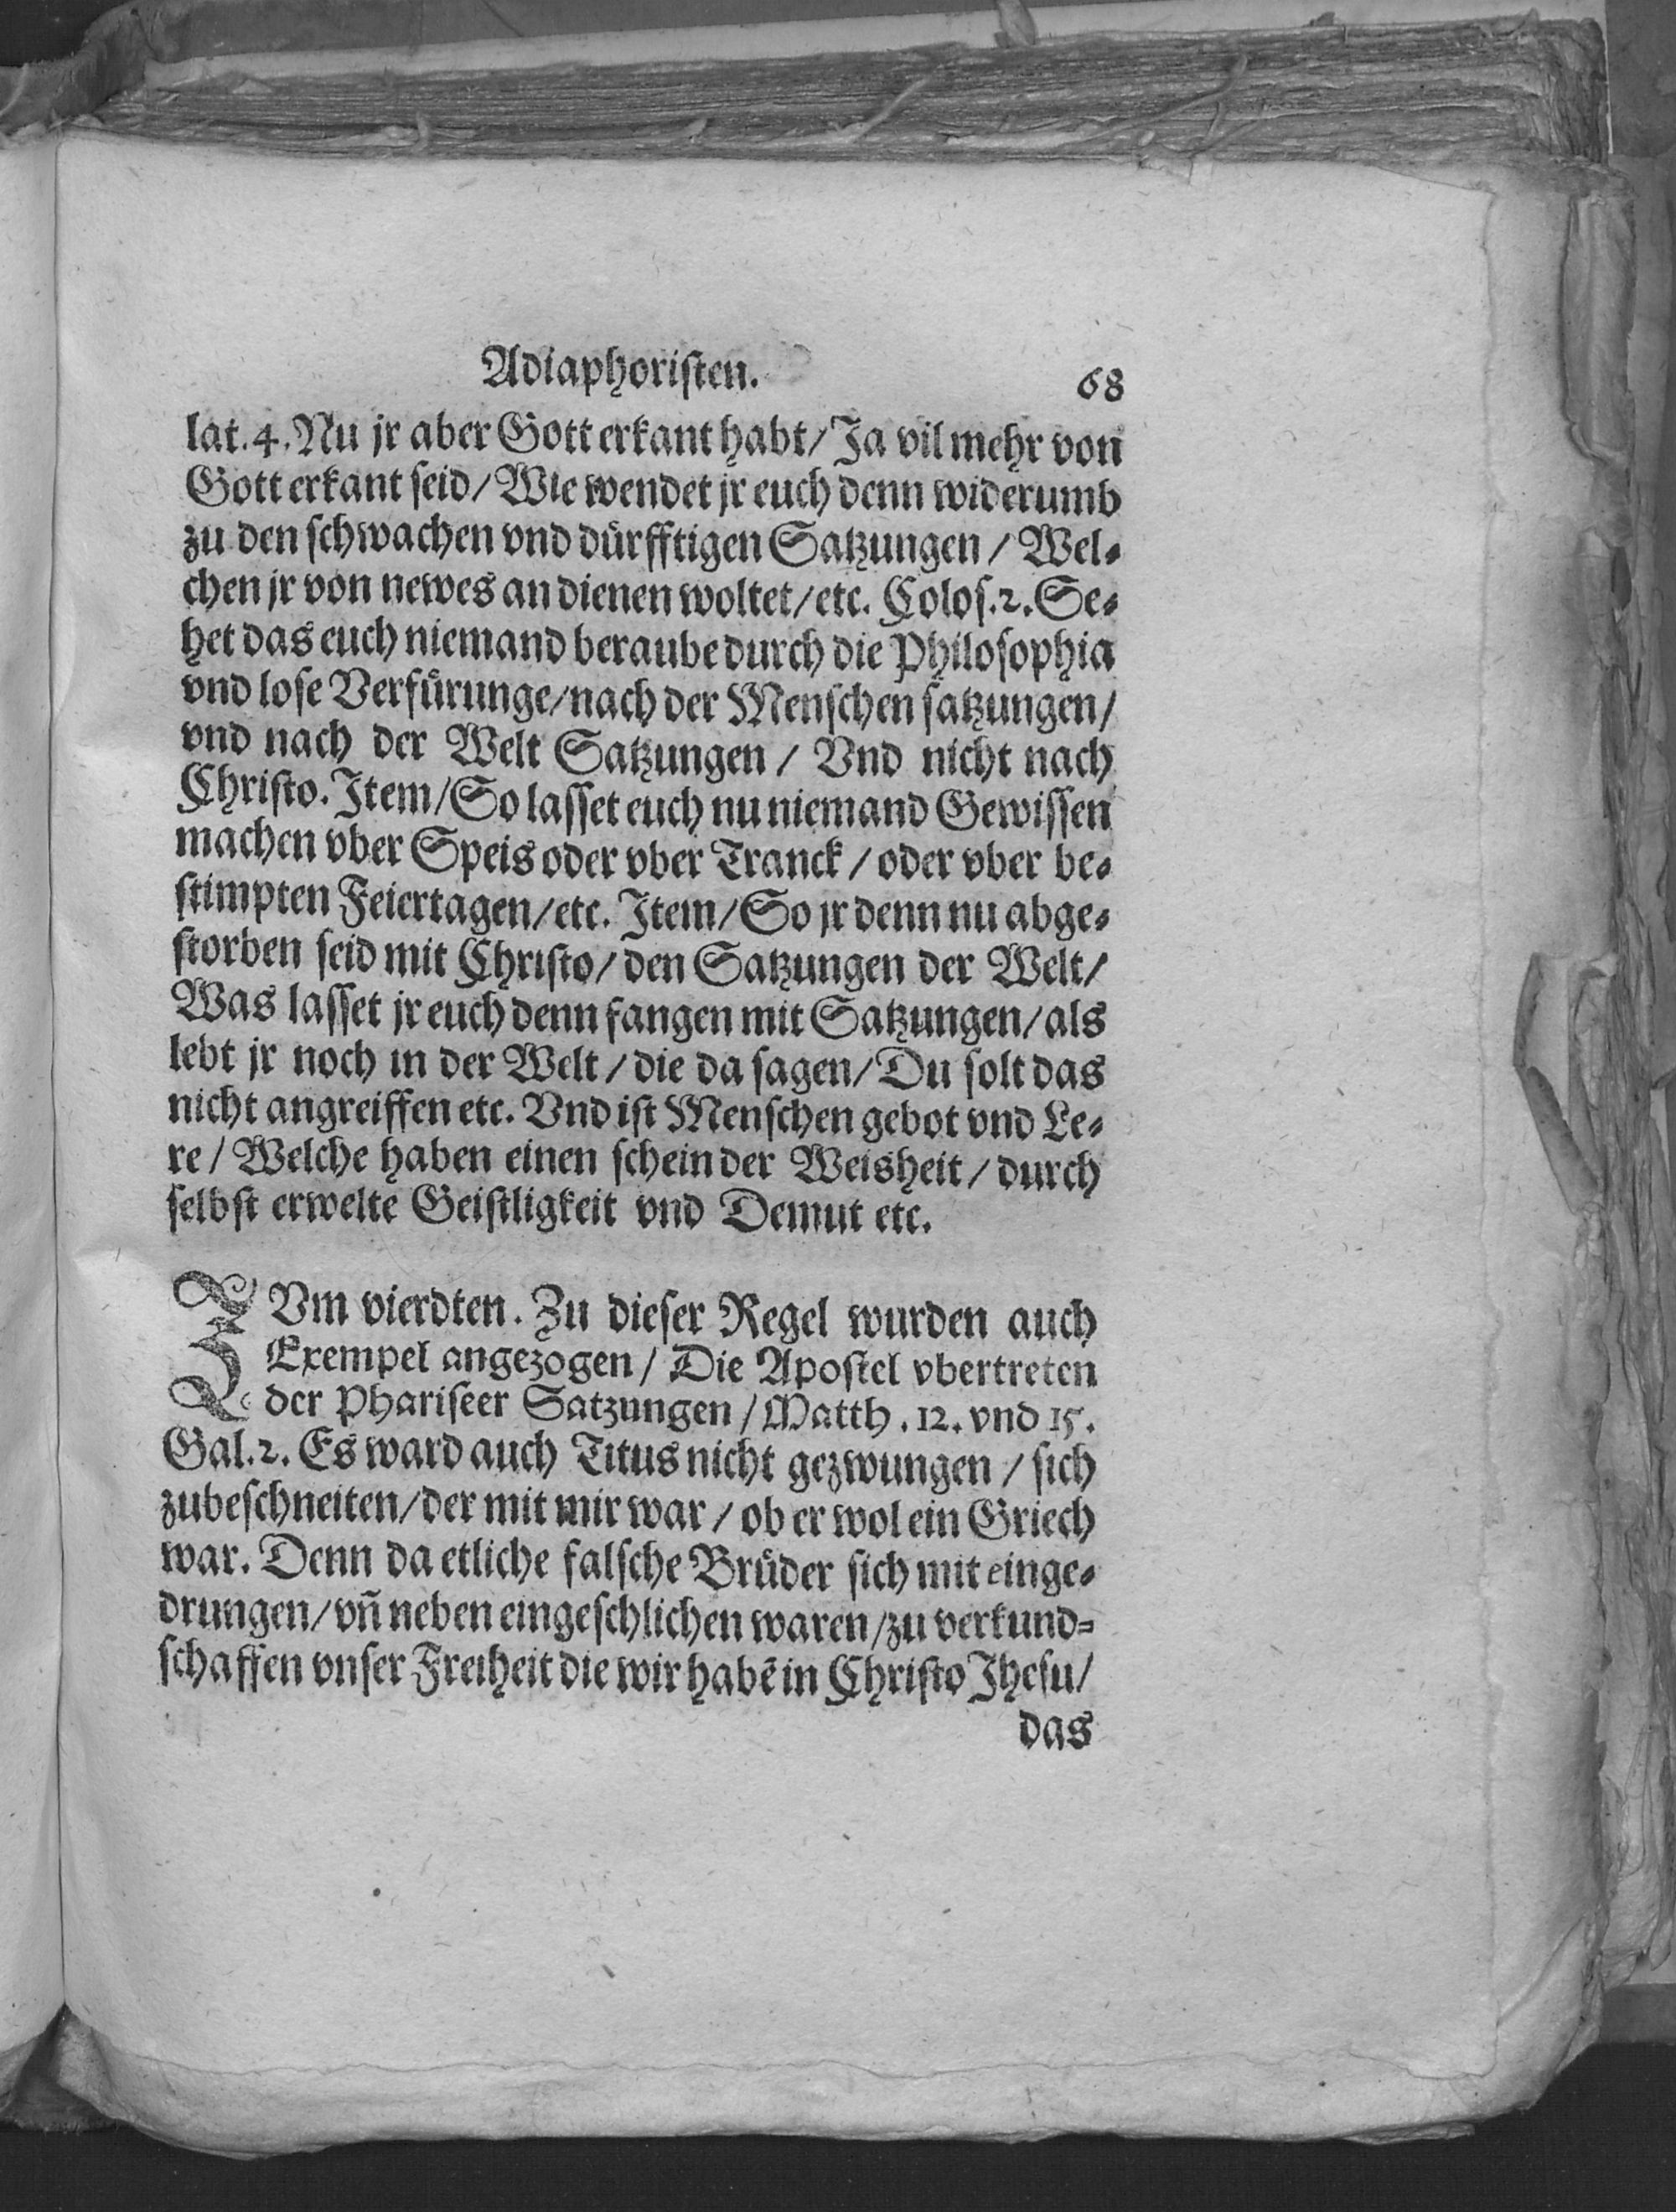 Adiaphoristen. 68
lat. 4. Nu jr aber Gott erkant habt/ Ja vil mehr von
Gott erkant seid/ Wie wendet jr euch denn widerumb
zu den schwachen vnd dürfftigen Satzungen/ Wel-
chen jr von newes an dienen woltet/ etc. Colos. 2. Se-
het das euch niemand beraube durch die Philosophia
vnd lose Verfürunge/ nach der Menschen satzungen/
vnd nach der Welt Satzungen/ Vnd nicht nach
Christo. Item/ So lasset euch nu niemand Gewissen
machen vber Speis oder vber Tranck/ oder vber be-
stimpten Feiertagen/ etc. Item/ So jr denn nu abge-
storben seid mit Christo/ den Satzungen der Welt/
Was lasset jr euch denn fangen mit Satzungen/ als
lebt jr noch in der Welt/ die da sagen/ Du solt das
nicht angreiffen etc. Vnd ist Menschen gebot vnd Le-
re/ Welche haben einen schein der Weisheit/ durch
selbst erwelte Geistligkeit vnd Demut etc.
ZVm vierdten. Zu dieser Regel wurden auch
Exempel angezogen/ Die Apostel vbertreten
der Phariseer Satzungen/ Matth. 12. vnd 15.
Gal. 2. Es ward auch Titus nicht gezwungen/ sich
zubeschneiten/ der mit mir war/ ob er wol ein Griech
war. Denn da etliche falsche Brüder sich mit einge-
drungen/ vñ neben eingeschlichen waren/ zu verkund=
schaffen vnser Freiheit die wir habē in Christo Jhesu/
das